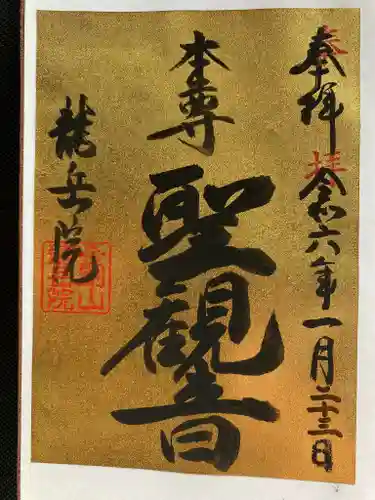 奉拝
令和六年一月二十三日
本尊
聖観音
龍岳院